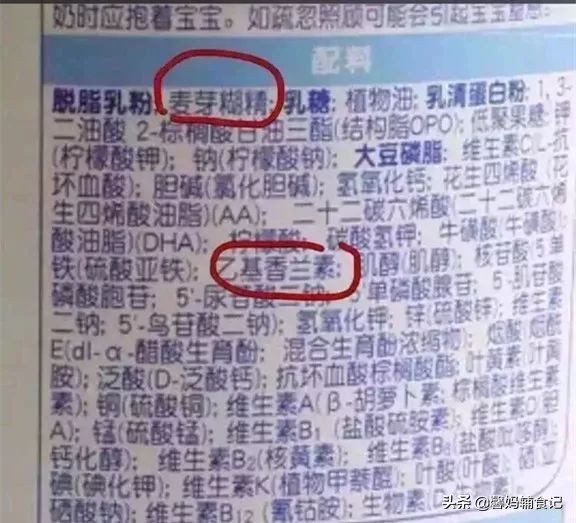 奶时应抱着宝宝。如疏忽照顾可能会引起宝宝窒息。
配料
脱脂乳粉; 麦芽糊精; 乳糖; 植物油; 乳清蛋白粉; 1, 3-
二油酸 2-棕榈酸甘油三酯(结构脂OPO); 低聚果糖; 钾
(柠檬酸钾); 钠(柠檬酸钠); 大豆磷脂; 维生素C(L-抗
坏血酸); 胆碱(氯化胆碱); 氢氧化钙; 花生四烯酸(花
生四烯酸油脂)(AA); 二十二碳六烯酸(二十二碳六烯
酸油脂)(DHA); 柠檬酸; 碳酸氢钾; 牛磺酸(牛磺酸);
铁(硫酸亚铁); 乙基香兰素; 肌醇(肌醇); 核苷酸(5'单
磷酸胞苷; 5'-尿苷酸二钠; 5'单磷酸腺苷; 5'-肌苷酸
二钠; 5'-鸟苷酸二钠); 氢氧化钾; 锌(硫酸锌); 维生素
E(dl-α-醋酸生育酚; 混合生育酚浓缩物); 烟酸(烟酰
胺); 泛酸(D-泛酸钙); 抗坏血酸棕榈酸酯; 叶黄素(叶黄
素); 铜(硫酸铜); 维生素A(β-胡萝卜素; 棕榈酸维生素
A); 锰(硫酸锰); 维生素B₁(盐酸硫胺素); 维生素D(胆
钙化醇); 维生素B₂(核黄素); 维生素B₆(盐酸吡哆醇);
碘(碘化钾); 维生素K(植物甲萘醌); 叶酸(叶酸); 硒(亚
硒酸钠); 维生素B₁₂(氰钴胺); 生物素(
头条 @馨妈辅食记